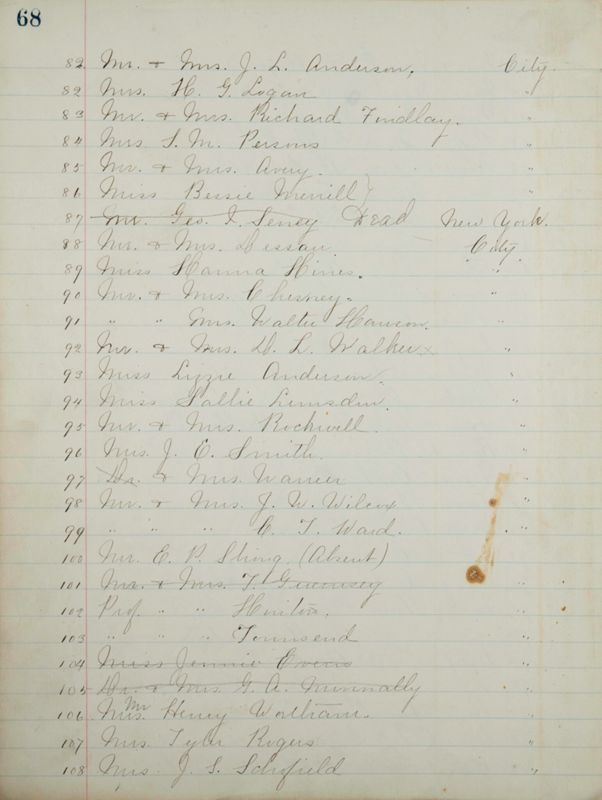 68
82 Mr. & Mrs. J. L. Anderson. City
82 Mrs. H. G. Logan "
83 Mr. & Mrs. Richard Findlay. "
84 Mrs S. M. Persons "
85 Mr. & Mrs. Avery. "
86 Miss Bessie Merrill "
87 Mr. Geo. I. Seney Dead New York.
88 Mr. & Mrs. Dessau. City.
89 Miss Hanna Hines. "
90 Mr. & Mrs. Chesney. "
91 " " Mrs. Walter "
92 Mr. & Mrs. D. L. Walker "
93 Miss Lizzie Anderson. "
94 Miss Sallie Lumsden. "
95 Mr. & Mrs. Rockwell. "
96 Mrs. J. E. Smith. "
97 Dr. & Mrs. "
98 Mr. & Mrs. J. W. Wilcox "
99 " " " C. T. Ward. "
100 Mr. E. P. (Absent)
101 Mr. & Mrs. T. Guernsey "
102 Prof. " " Hinton. "
103 " " " Townsend "
104 Miss Jennie Evans
105 Dr. & Mrs. G. A.
106 Mrs. Mr Henry "
107 Mrs. Tyler Rogers "
108 Mrs. J. S. Schofield "